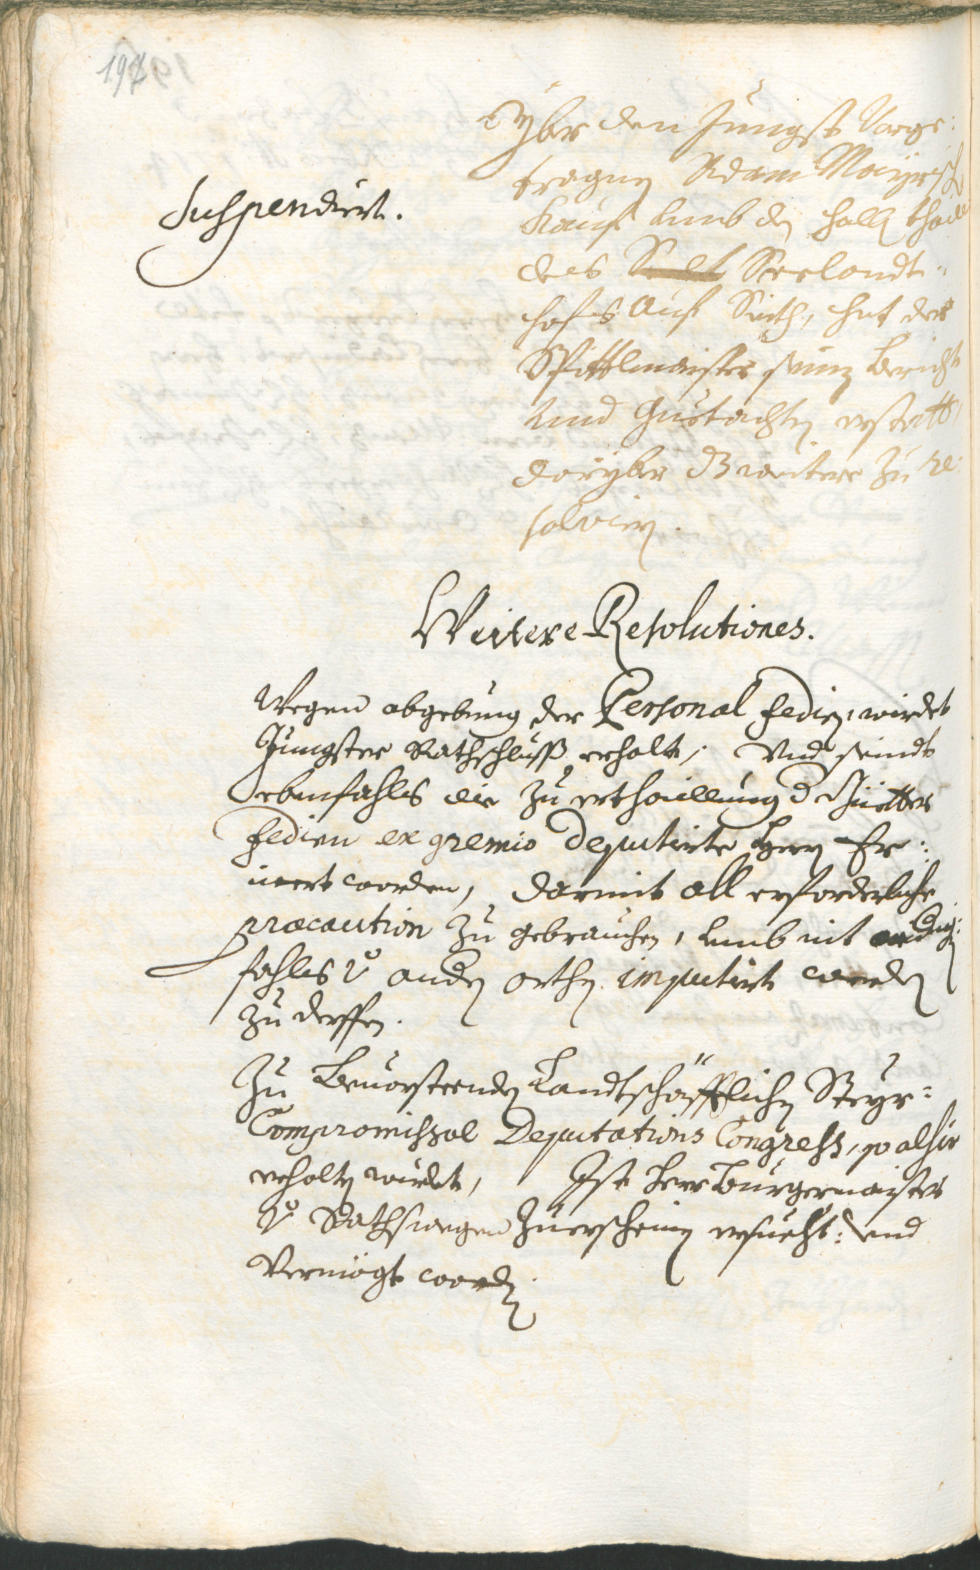 197
Yber den Jüngst Vorge:
tragnen Adam Mayrisch
Kauf umb den halben thaill
des Seelandt=
hofs auf Seith, hat der
Spittlmaister seinen Bericht
und Guetachten erstatt,
darüber weiters zu re:
solvirn.
Suspendiert.
Weitere Resolutiones.
Wegen abgebung der Personal fedien, wirdet
Jüngster Rathschluß erholt, Und seindt
ebenfahls die zu erthaillung d
fedien ex gremio deputierte herrn Er:
inert worden, darmit all erforderliche
præcaution zu gebrauchen, umb nit
fahls an andern orthen imputiert werden
zu derffen.
Zu Bevorsteenden Landtschäfftlichen Steyr=
Compromissal Deputations Congress, so alhie
erholten wirdet, Ist herr Burgermaister
v Raths wegen Zuerscheinen ersuecht: und
Vermögt worden.